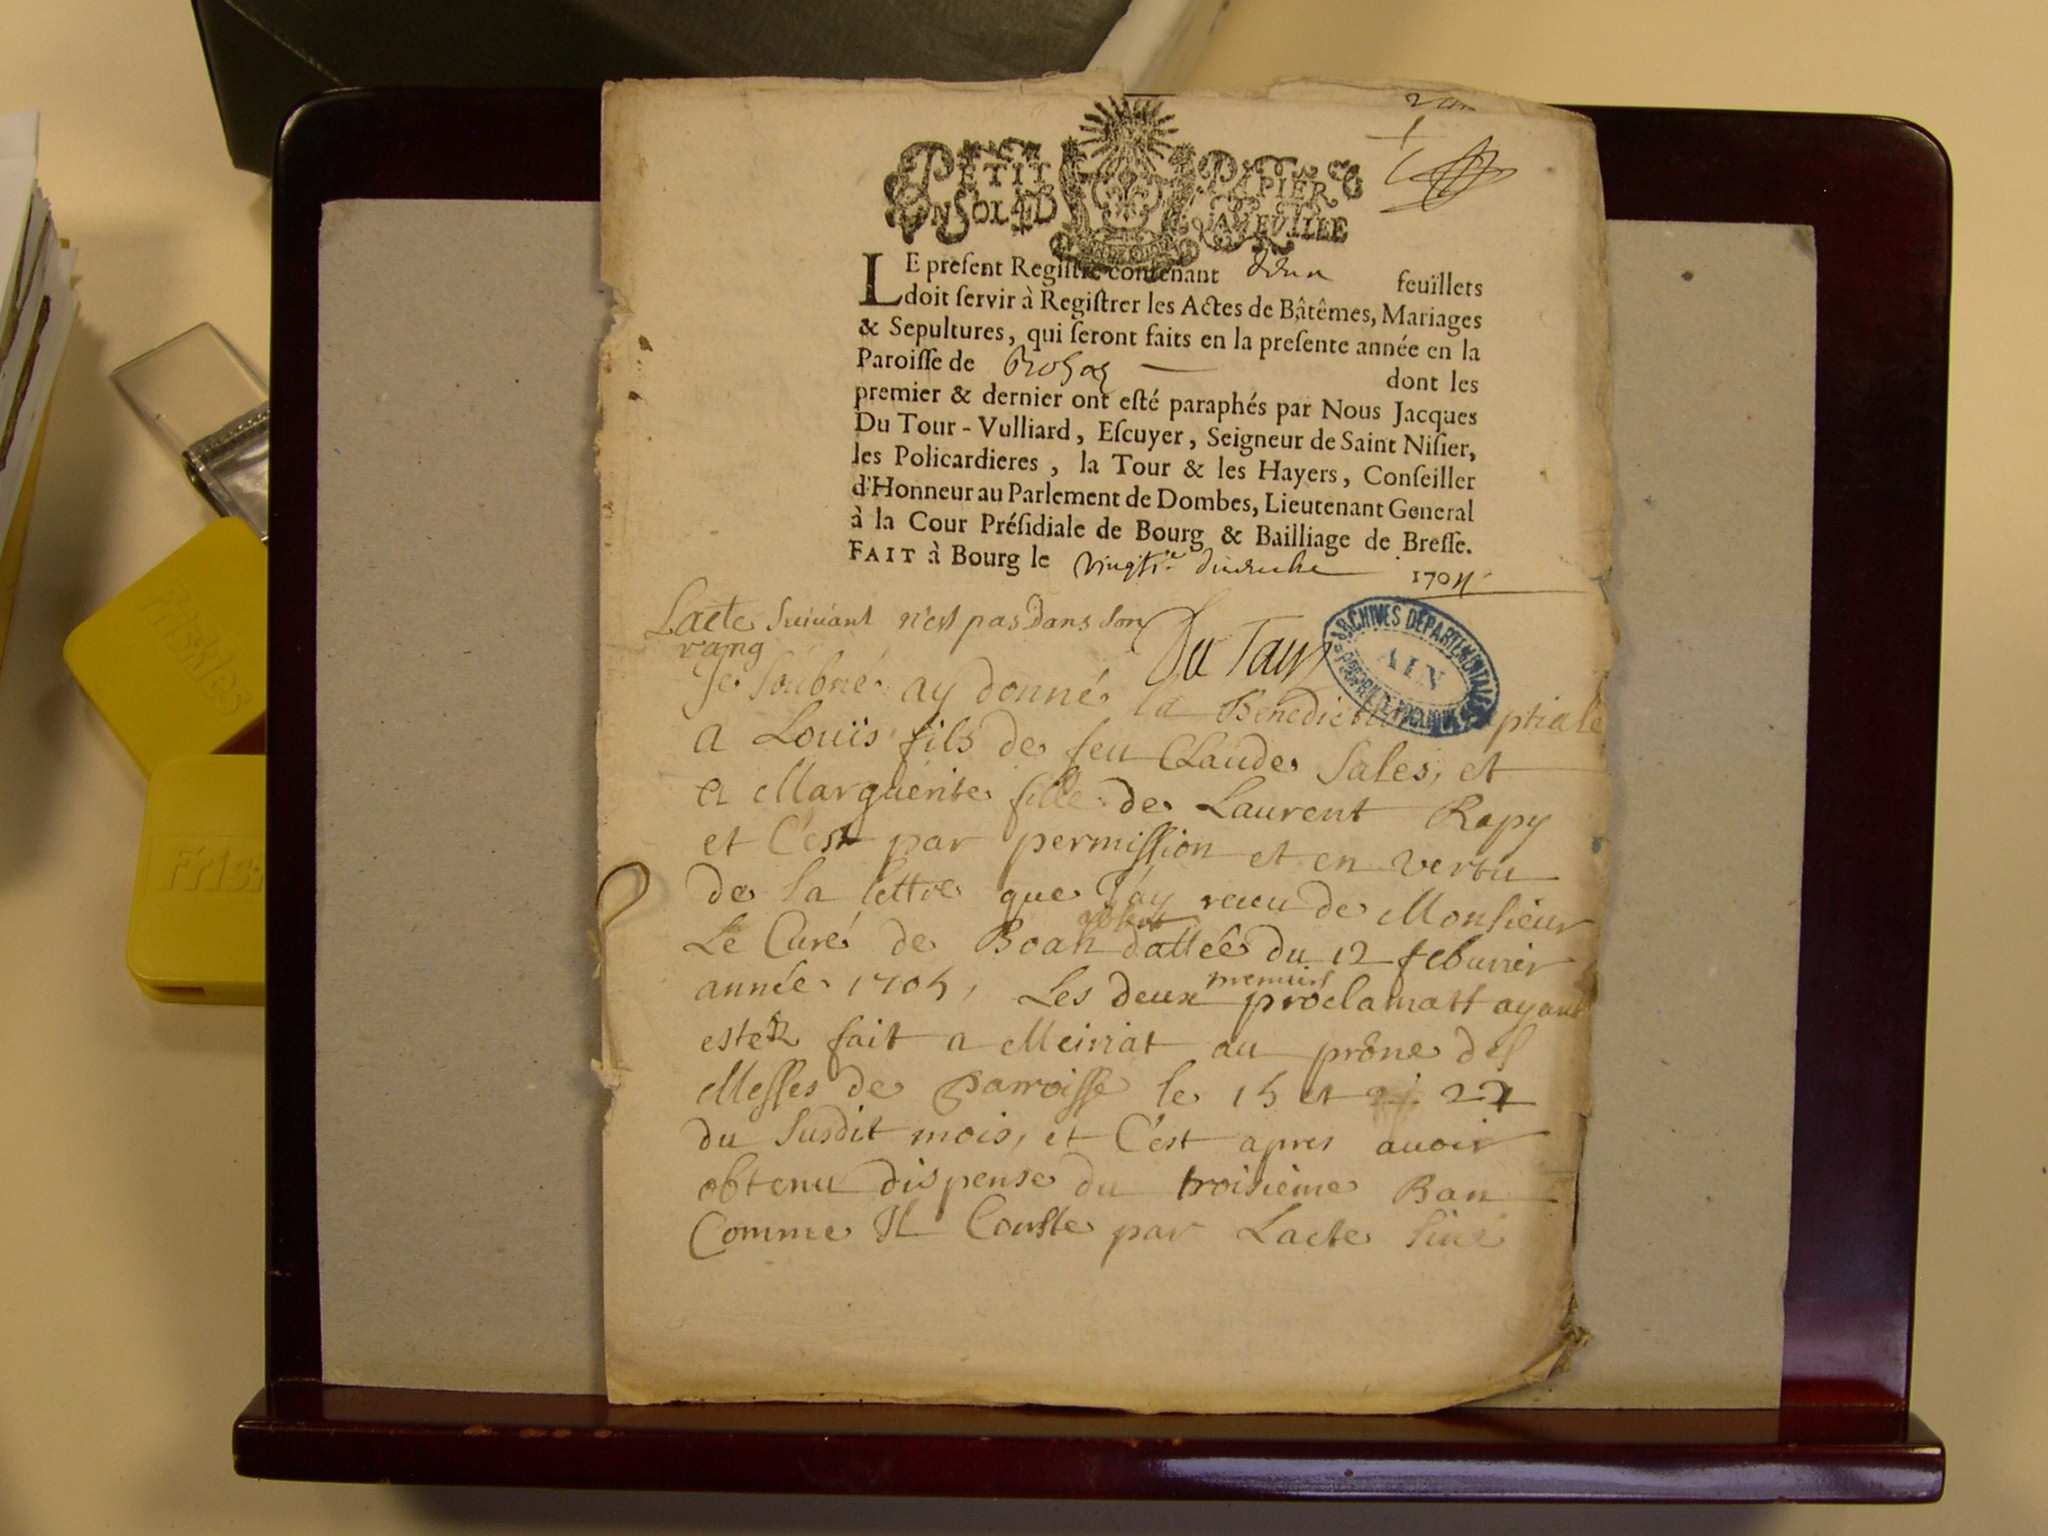 PETIT PAPIER
UN SOL 4D LA FEUILLE
LE preſent Regiſtre contenant feuillets
doit ſervir à Regiſtrer les Actes de Bâtêmes, Mariages
& Sepultures, qui ſeront faits en la preſente année en la
Paroiſſe de dont les
premier & dernier ont eſté paraphés par Nous Jacques
Du Tour-Vulliard, Eſcuyer, Seigneur de Saint Niſier,
les Policardieres, la Tour & les Hayers, Conſeiller
d'Honneur au Parlement de Dombes, Lieutenant General
à la Cour Préſidiale de Bourg & Bailliage de Breſſe.
FAIT à Bourg le 1704
Lacte suivant n'est pas dans son
rang
Du Tour
ARCHIVES DÉPARTEMENTALES
AIN
Je soubné ay donné la Benediction nuptiale
a Louis fils de feu Claude Sales, et
a Marguerite fille de Laurent Rapy
et C'est par permission et en vertu
de la lettre que J'ay receu de Monsieur
Le Curé de Boan dattée du 12 feburier
année 1705, Les deux premiers proclamatt ayant
esté fait a Meiriat au prône des
Messes de parroisse le 15 et 22
du susdit mois, et C'est apres avoir
obtenu dispense du troisième Ban
Comme Il Conste par Lacte siné